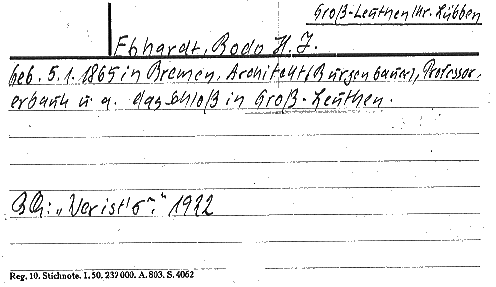 Groß-Leuthen Kr. Lübben
Ebhardt, Bodo H. J.
geb. 5.1.1865 in Bremen, Architekt (Burgenbauer), Professor,
erbaute u. a. das Schloß in Groß-Leuthen.
BQ: „Wer ist's?" 1922
Reg. 10. Stichnote. 1. 50. 232 000. A. 803. S. 4062